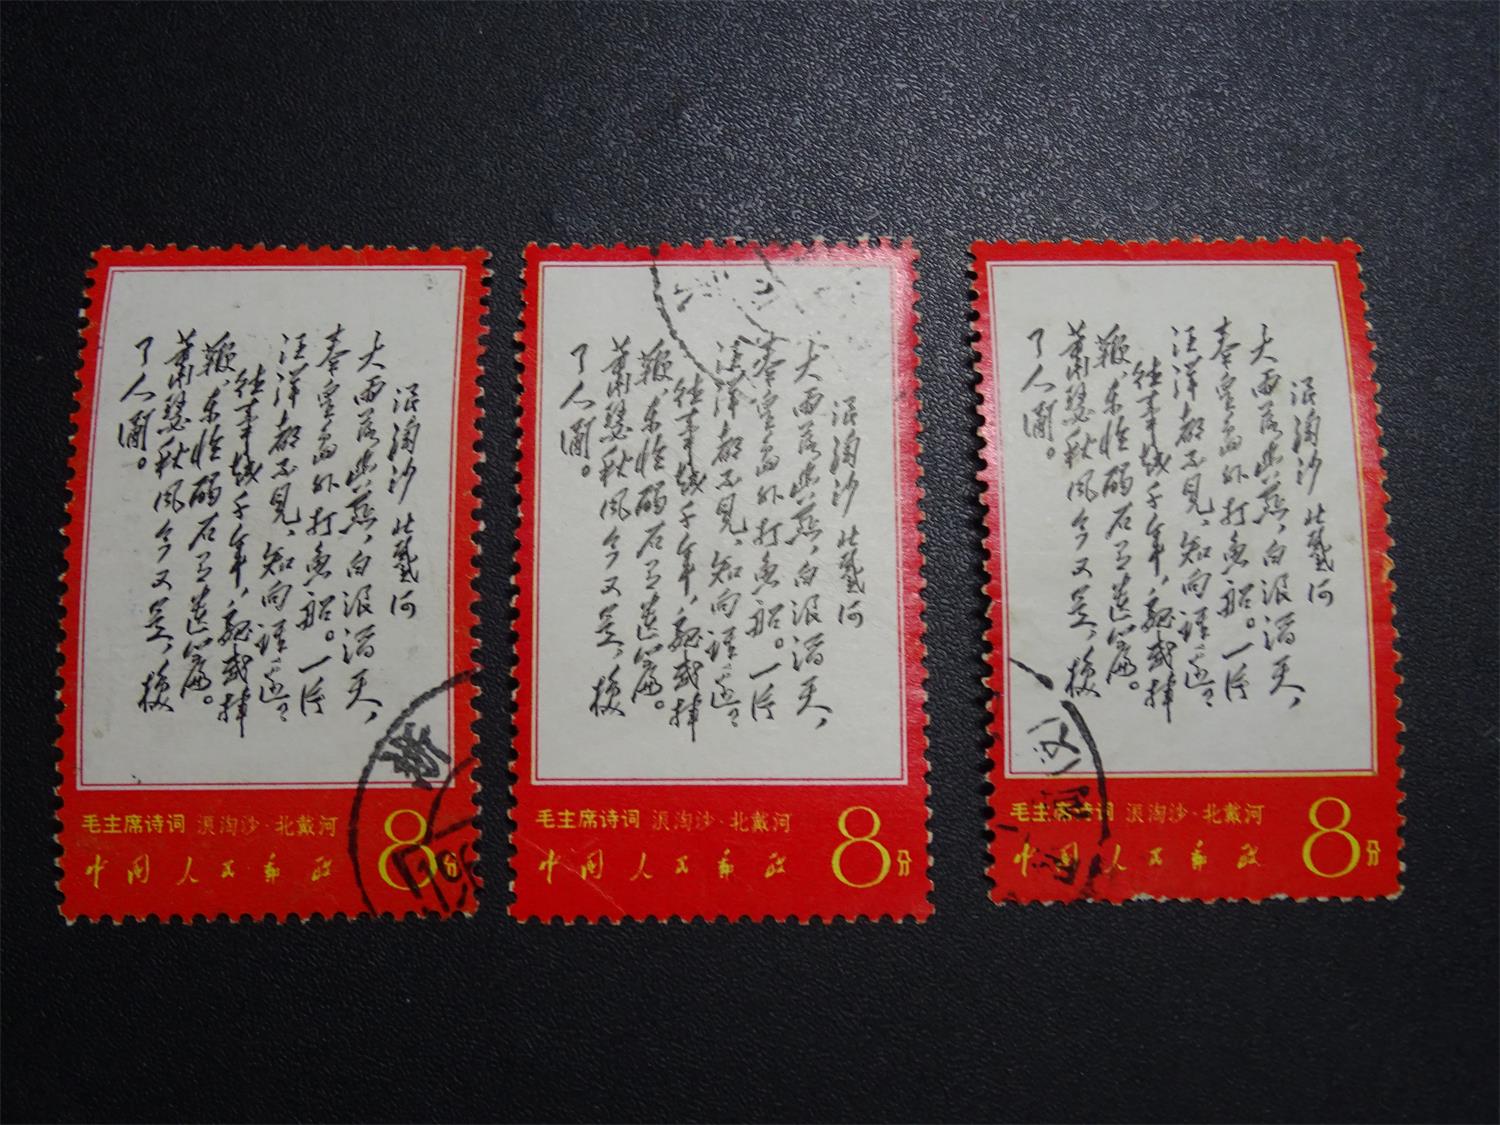 浪淘沙 北戴河
大雨落幽燕，白浪滔天，
秦皇島外打魚船。一片
汪洋都不見，知向誰邊？
往事越千年，魏武揮
鞭，東臨碣石有遺篇。
蕭瑟秋風今又是，換
了人間。
毛主席诗词 浪淘沙·北戴河
中国人民邮政
8分
浙
浪淘沙 北戴河
大雨落幽燕，白浪滔天，
秦皇島外打魚船。一片
汪洋都不見，知向誰邊？
往事越千年，魏武揮
鞭，東臨碣石有遺篇。
蕭瑟秋風今又是，換
了人間。
毛主席诗词 浪淘沙·北戴河
中国人民邮政
8分
浪淘沙 北戴河
大雨落幽燕，白浪滔天，
秦皇島外打魚船。一片
汪洋都不見，知向誰邊？
往事越千年，魏武揮
鞭，東臨碣石有遺篇。
蕭瑟秋風今又是，換
了人間。
毛主席诗词 浪淘沙·北戴河
中国人民邮政
8分